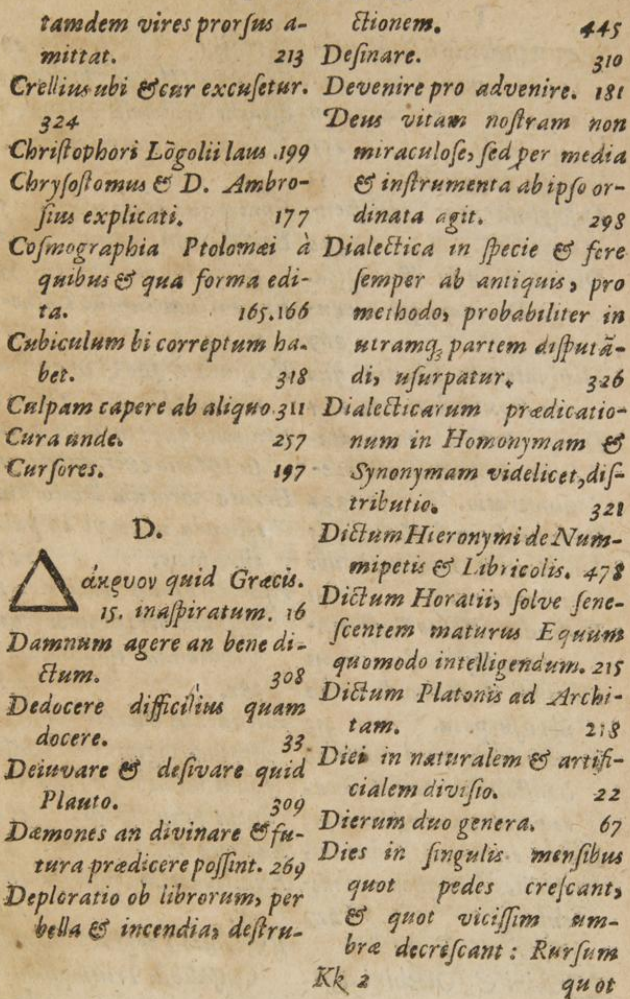 tamdem vires prorſus a-
mittat. 213
Crellius ubi & cur excuſetur.
324
Chriſtophori Lõgolii laus . 199
Chryſoſtomus & D. Ambro-
ſius explicati. 177
Coſmographia Ptolomæi à
quibus & qua forma edi-
ta. 165.166
Cubiculum bi correptum ha-
bet. 318
Culpam capere ab aliquo 311
Cura unde. 257
Curſores. 197
D.
Δάκρυον quid Græcis.
15. inaſpiratum. 16
Damnum agere an bene di-
ctum. 308
Dedocere difficilius quam
docere. 33.
Deiuvare & deſivare quid
Plauto. 309
Dæmones an divinare & fu-
tura prædicere poſſint. 269
Deploratio ob librorum, per
bella & incendia, deſtru-
ctionem. 445
Deſinare. 310
Devenire pro advenire. 181
Deus vitam noſtram non
miraculoſe, ſed per media
& inſtrumenta ab ipſo or-
dinata agit. 298
Dialectica in ſpecie & fere
ſemper ab antiquis, pro
methodo, probabiliter in
utramq; partem diſputã-
di, uſurpatur. 326
Dialecticarum prædicatio-
num in Homonymam &
Synonymam videlicet, diſ-
tributio. 321
Dictum Hieronymi de Num-
mipetis & Libricolis. 478
Dictum Horatii, ſolve ſene-
ſcentem maturus Equum
quomodo intelligendum. 215
Dictum Platonis ad Archi-
tam. 218
Diei in naturalem & artifi-
cialem diviſio. 22
Dierum duo genera. 67
Dies in ſingulis menſibus
quot pedes creſcant,
& quot viciſſim um-
bræ decreſcant : Rurſum
Kk 2 quot